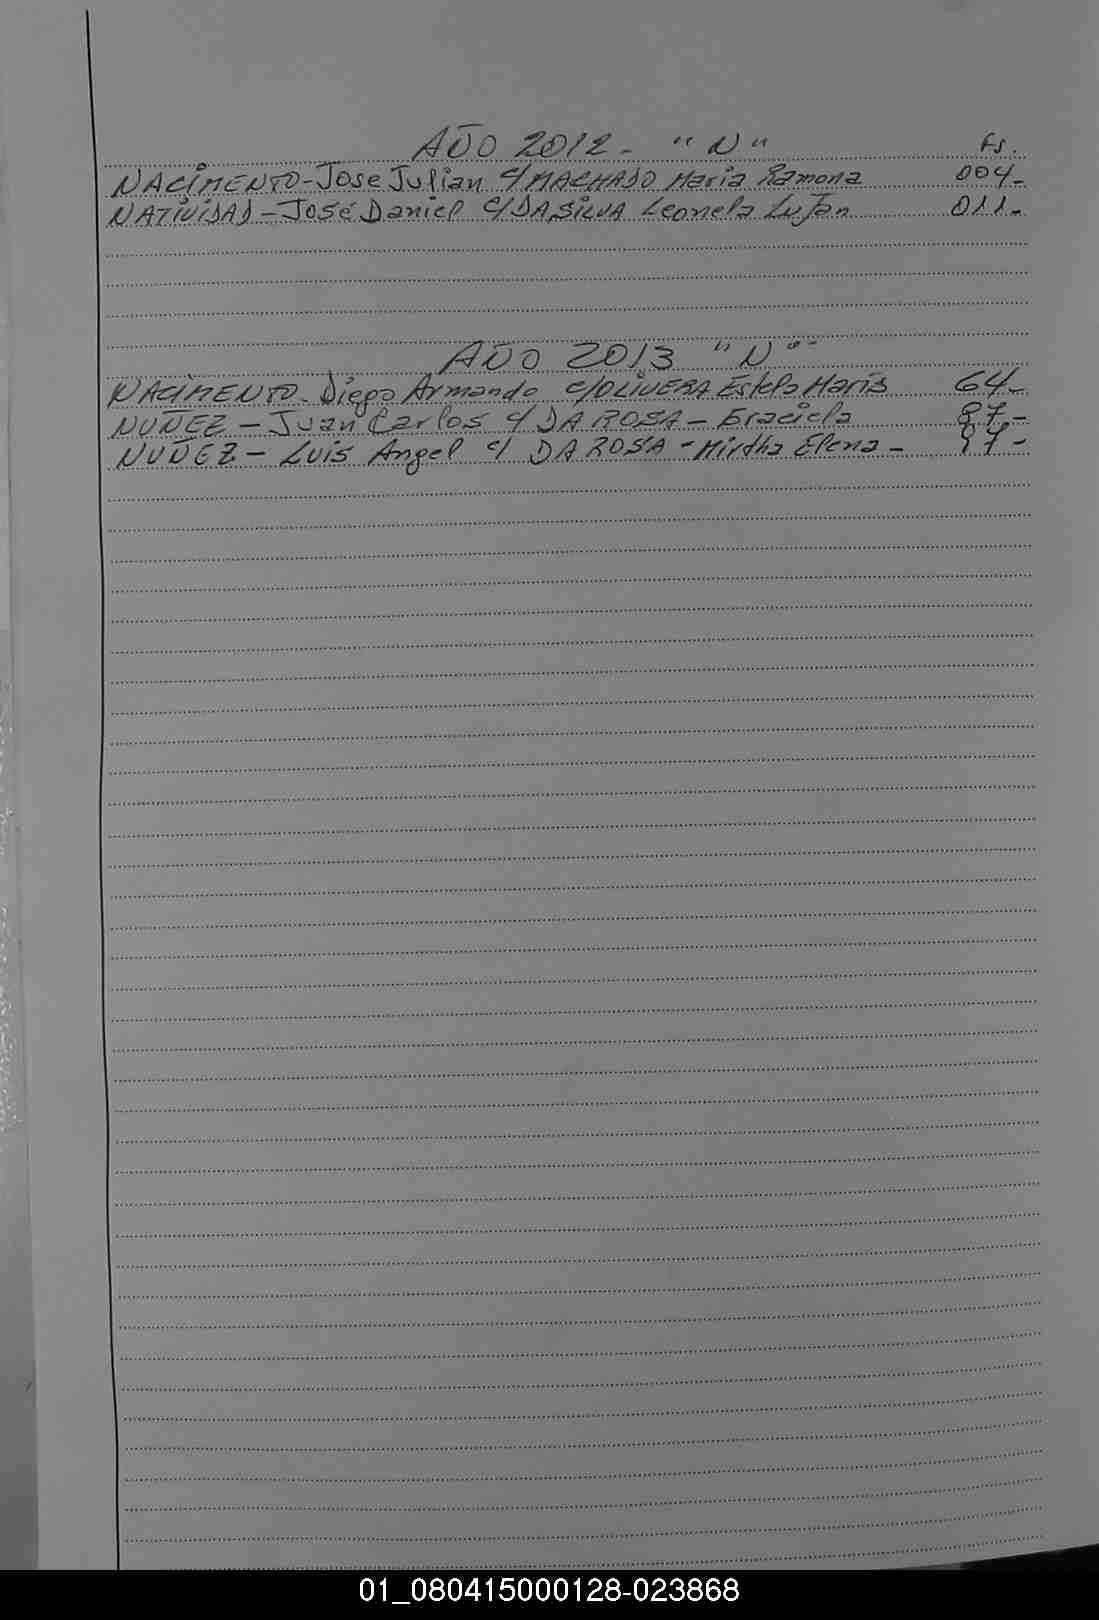 AÑO 2012 - "N" Fs.
NACIMENTO - Jose Julian c/ MACHADO Maria Ramona 004-
NATIVIDAD - José Daniel c/ DA SILVA Leonela Lujan 011-
AÑO 2013 "N"-
NACIMENTO - Diego Armando c/ OLIVERA Estela Maris 64-
NUÑEZ - Juan Carlos c/ DA ROSA - Graciela 87-
NUÑEZ - Luis Angel c/ DA ROSA - Mirtha Elena -
01_080415000128-023868